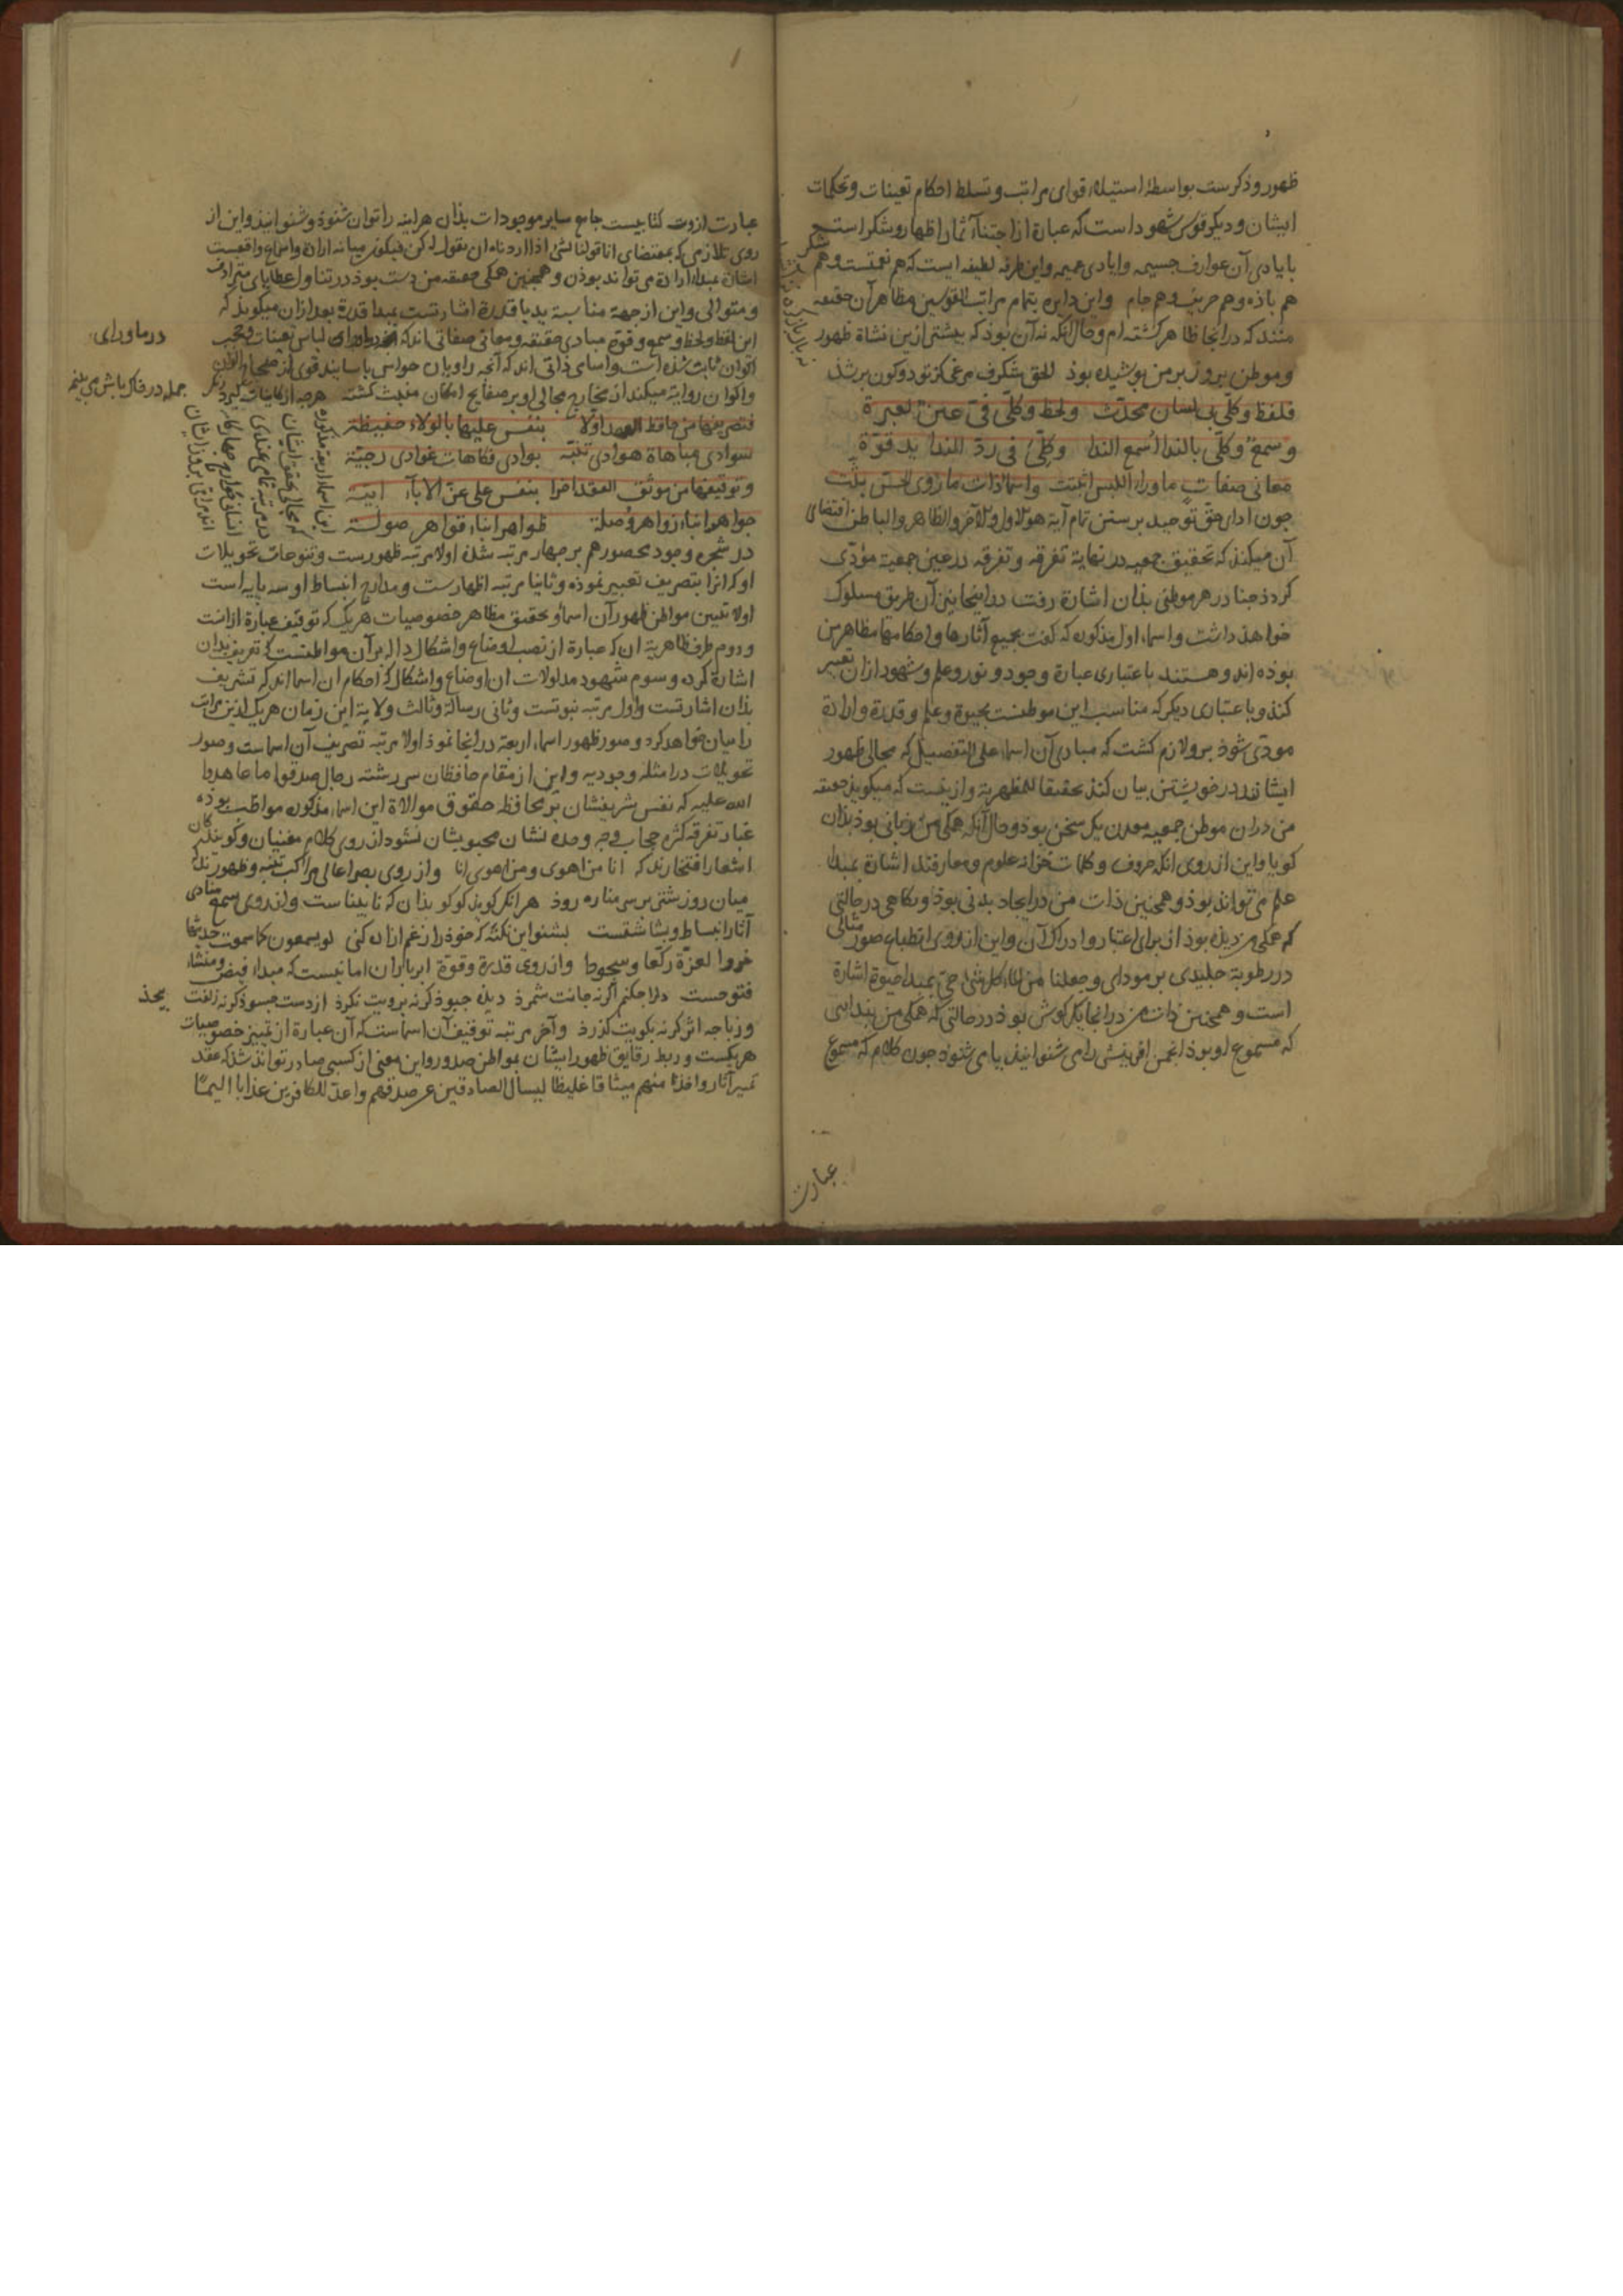 ظهور و ذکرست بواسطهٔ استیلاء قوای مراتب و تسلط احکام تعینات و تحکمات
ایشان و دیکر قوس شهود است که عبارة از اجتناء آثمار اظهار و شکر است
بایادی آن عوارف جسیمه و ایادی عمیمه و این طرفه لطیفه ایست که هم نعمتست و هم شکر
هم باذه و هم حریف و هم جام واین دایره بتمام مراتب القوسین مظاهر آن حقیقه
منند که در اینجا ظاهر کشته ام و حال آنکه نه آن بوذ که بیشتر ازین نشاة ظهور
و موطن بروز بر من بوشیده بوذ للحق شکرف مرغی کز تو دو کون بر شذ
فلفظ وکلی بی لسان محدث ولحظ وکلی فی عین لعبرة
وسمع وکلی بالندا اسمع الندا وکلی فی رد الندا ید قوة
معانی صفات ما وراء اللبس اثبتت واسماء ذات ما روی الحس بثت
جون ادای حق توحید برستن تمام آیة هو الاول والآخر والظاهر والباطن اقتضای
آن میکند که تحقیق جمعیه در نهایة تفرقه و تفرقه در عین جمعیة مؤدی
کردد جنا در هر موطنی بذان اشارة رفت در اینجا نیز آن طریق مسلوک
خواهد داشت و اسماء اول مذکوره که کفت بجمیع آثارها و احکامها مظاهر من
بوده اند و هستند باعتباری عبارة وجود و نور و علم و شهود از ان تعبیر
کند و باعتباری دیکر که مناسب این موطنست بحیوة و علم و قدرة و ارادة
مودی شوذ برو لازم کشت که مبادی آن اسماء علی التفصیل که مجالی ظهور
ایشانند در خویشتن بیان کند تحقیقا للمظهریة و ازینست که میکویذ حقیقه
من دران موطن جمعیه معدن یک سخن بوذ و حال آنکه همکی من زبانی بوذ بذان
کویا واین از روی انکه حروف و کلمات خزانه علوم و معارفند اشارة بمبداء
علم می تواند بوذ و همجنین ذات من در ایجاد بدنی بوذ و نکاهی در حالتی
که همکی من دیذه بوذ از برای اعتبار و ادراک آن واین از روی انطباع صور مثالی
در رطوبة جلیدی بر مودای وجعلنا من الماء کل شیء حی بمبداء حیوة اشارة
است و همجنین ذات من در اینجا یک کوش بوذ در حالتی که همکی من
که مسموع او بوذ انجمن افرینش را می شنوانید یا می شنود جون کلام که مسموع
عبارت
عبارت ازوست کتابیست جامع سایر موجودات بذان هراینه را توان شنوذ و شنوانیذ واین از
روی تلازمی که بمقتضای انما قولنا لشیء اذا اردناه ان نقول له کن فیکون میانه ارادة و اسماع واقعست
اشارة بمبداء ارادة می تواند بوذن و همجنین همکی حقیقه من دست بوذ در تناول عطایای مترادف
و متوالی واین از جهة مناسبة ید با قدرة اشارتست بمبداء قدرة بعد ازان میکویذ که
این لفظ و لحظ و سمع و قوة مبادی حقیقه و معانی صفاتی اند که در ماورای لباس تعینات و حجب
اکوان ثابت شذه است و اسامی ذاتی اند که آنجه راویان حواس
و اکوان روایة میکنند از مخارج مجالی او بر صفایح امکان منبث کشته
در ماورای
جمله در فاکر باش می بینم
فتصریفها من حافظ العهد اولا بنفس علیها بالولاء حفیظة
سوادی مباهاة هوادی تنبه بوادی فکاهات غوادی رجیة
وتوقیفها من موثق العقد اخرا بنفس علی عز الاباء ابیة
جواهر انباء زواهر وصلة ظواهر ابناء قواهر صولة
در شجره وجود محصورهم بر جهار مرتبه شذه اولا مرتبه ظهورست و تنوعات تحویلات
او که انرا بتصریف تعبیر نموذه و ثانیا مرتبه اظهارست و مدارج انبساط او سه پایه است
اولا تعیین مواطن ظهور آن اسماء و تحقیق مظاهر خصوصیات هریک که توقیف عبارة ازانست
و دوم طرف ظاهریة ان که عبارة از نصب اوضاع و اشکال داله بر آن مواطنست که تعریف بذان
اشارة کرده و سوم شهود مدلولات ان اوضاع و اشکال که احکام ان اسما اند که تشریف
بذان اشارتست و اول مرتبه نبوتست و ثانی رسالة و ثالث ولایة این زمان هریک ازین مراتب
را میان خواهد کرد و صور ظهور اسماء اربعة در اینجا نموذ اولا مرتبه تصریف آن اسماست و صور
تحویلات در امثله وجودیه واین از مقام حافظان سر رشته رجال صدقوا ما عاهدوا
الله علیه که نفس شریفشان بر محافظه حقوق موالاة این اسماء مذکوره مواظب بوده
غبار تفرقه کثره حجاب وجه وحده نشان محبوبشان نشود از روی کلام مغنیان و کویندکان
اشعار افتخارند که انا من اهوی ومن اهوی انا و از روی بصر اعالی مراکب تنبه و ظهورند که
میان روز شتر بر سر مناره روذ هر انکه کویذ کو کو بذان که نابیناست و از روی سمع منادی
آثار انبساط و بشاشتست بشنو این نکته که خوذ را ز غم ازاده کنی لو یسمعون کما سمعت حدیثها
خروا لعزة رکعا وسجودا و از روی قدرة و قوة ابر باران امانیست که مبداء فیض و منشاء
فتوحست دلا جکنم اکر نه جانت شمرذ دیذه جبوذ کرنه برویت نکرذ از دست جسوذ کرنه زلفت بجذ
و ز پا جه اثر کرنه بکویت کذرذ و آخر مرتبه توقیف آن اسماست که آن عبارة از تمییز خصوصیات
هریکست و ربط رقایق ظهور ایشان بمواطن صدور واین معنی از کسی صادر تواند شذ که عقد
تمییز آثار واخذنا منهم میثاقا غلیظا لیسال الصادقین عن صدقهم واعد للکافرین عذابا الیما